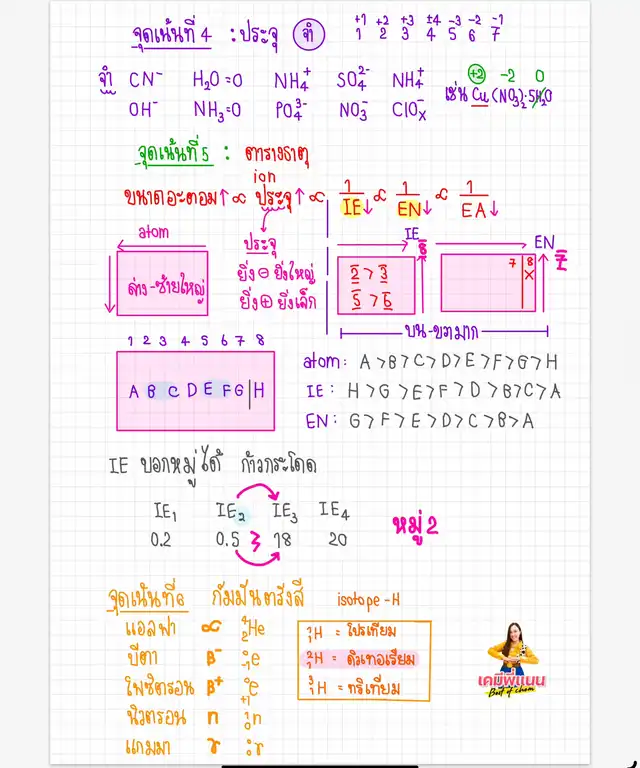 จุดเน้นที่ 4 : ประจุ จำ +1 +2 +3 ±4 -3 -2 -1
1 2 3 4 5 6 7
จำ CN⁻ H₂O=0 NH₄⁺ SO₄²⁻ NH₄⁺ +2 -2 0
OH⁻ NH₃=0 PO₄³⁻ NO₃⁻ ClOₓ⁻ เช่น Cu(NO₃)₂·5H₂O
จุดเน้นที่ 5 : ตารางธาตุ
ion
ขนาดอะตอม↑ ∝ ประจุ↑ ∝ 1/IE↓ ∝ 1/EN↓ ∝ 1/EA↓
atom ประจุ IE 8 EN 7
ล่าง-ซ้ายใหญ่ ยิ่ง ⊖ ยิ่งใหญ่ 2 > 3 7 8
ยิ่ง ⊕ ยิ่งเล็ก 5 > 6 x
บน-ขวามาก
1 2 3 4 5 6 7 8
atom: A > B > C > D > E > F > G > H
A B C D E F G H IE: H > G > E > F > D > B > C > A
EN: G > F > E > D > C > B > A
IE บอกหมู่ได้ ก้าวกระโดด
IE₁ IE₂ IE₃ IE₄
0.2 0.5 18 20 หมู่ 2
จุดเน้นที่ 6 กัมมันตรังสี isotope-H
แอลฟา ∝ ⁴₂He
บีตา β⁻ ⁰₋₁e
โพซิตรอน β⁺ ⁰₊₁e
นิวตรอน n ¹₀n
แกมมา γ ⁰₀γ
¹₁H = โปรเทียม
²₁H = ดิวเทอเรียม
³₁H = ทริเทียม
เคมีพี่แนน
Best of chem